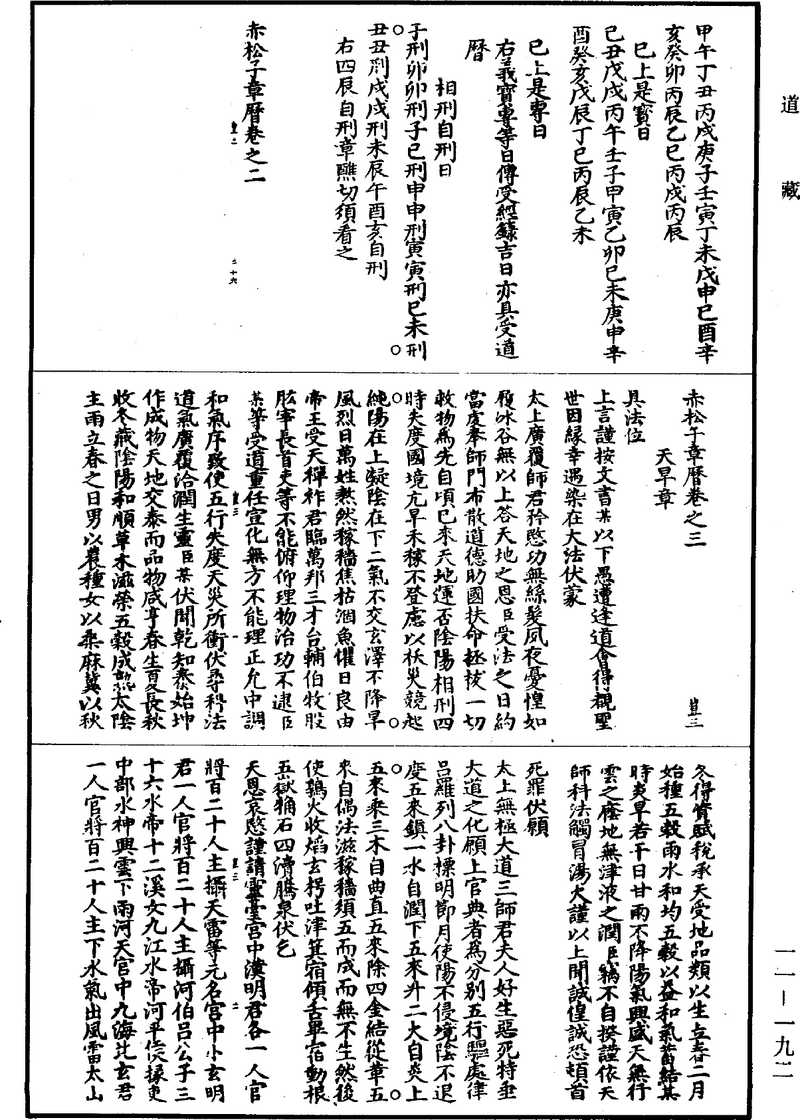 道藏
甲午丁丑丙戌庚子壬寅丁未戊申巳酉辛
亥癸卯丙辰乙巳丙戌丙辰
巳上是寶日
己丑戊戌丙午壬子甲寅乙卯巳未庚申辛
酉癸亥戊辰丁巳丙辰乙未
巳上是專日
右義寶專等日傳受經籙吉日亦具受道
曆
相刑自刑日
子刑卯卯刑子巳刑申申刑寅寅刑巳未刑
丑丑刑戌戌刑未辰午酉亥自刑
右四辰自刑章醮切須看之
赤松子章曆卷之二
赤松子章曆卷之三
豈三
天旱章
具法位
上言謹按文書某以下愚遭逢道會得覩聖
世因緣幸遇染在大法伏蒙
太上廣覆師君矜愍功無絲髮夙夜憂惶如
履冰谷無以上答天地之恩臣受法之日約
當虔奉師門布散道德助國扶命拯拔一切
救物為先自頃已來天地運否陰陽相刑四
時失度國境亢旱禾稼不登慮以秋災競起
純陽在上凝陰在下二氣不交玄澤不降旱
風烈日萬姓熬然稼穡焦枯涸魚懼日良由
帝王受天禪祚君臨萬邦三才台輔伯牧股
肱宰長首吏等不能俯仰理物治功不逮臣
某等受道重任宣化無方不能理正允中調
和氣序致使五行失度天災所衝伏尋科法
道氣廣覆洽潤生靈臣某伏聞乾知泰始坤
作成物天地交泰而品物咸亨春生夏長秋
收冬藏陰陽和順草木滋榮五穀成熟太陰
主雨立春之日男以農種女以桑麻冀以秋
冬得資賦稅承天受地品類以生立春二月
始種五穀雨水和均五穀以益和氣蓄結某
時炎旱若干日甘雨不降陽氣興盛天無行
雲之廕地無津液之潤臣竊不自揆謹依天
師科法觸冒湯大謹以上聞誠惶誠恐頓首
死罪伏願
太上無極大道三師君夫人好生惡死特垂
大道之化願上官典者為分別五行驅處律
呂羅列八卦標明節月使陽不侵境陰不退
度五來鎮一水自潤下五來升二大自炎上
五來乘三木自曲直五來除四金結從革五
來自偶法滋稼穡須五而成而無不生然後
使鶉火收焰玄枵吐津箕宿傾舌畢宿動根
五嶽犕石四瀆騰泉伏乞
天恩哀愍謹請靈臺宮中漢明君各一人官
將百二十人主攝天雷等元名宮中小玄明
君一人官將百二十人主攝河伯呂公子三
十六水帝十二溪女九江水帝河平侯掾吏
中部水神興雲下雨河天官中九海北玄君
一人官將百二十人主下水氣出風雷太山
一一－一九二